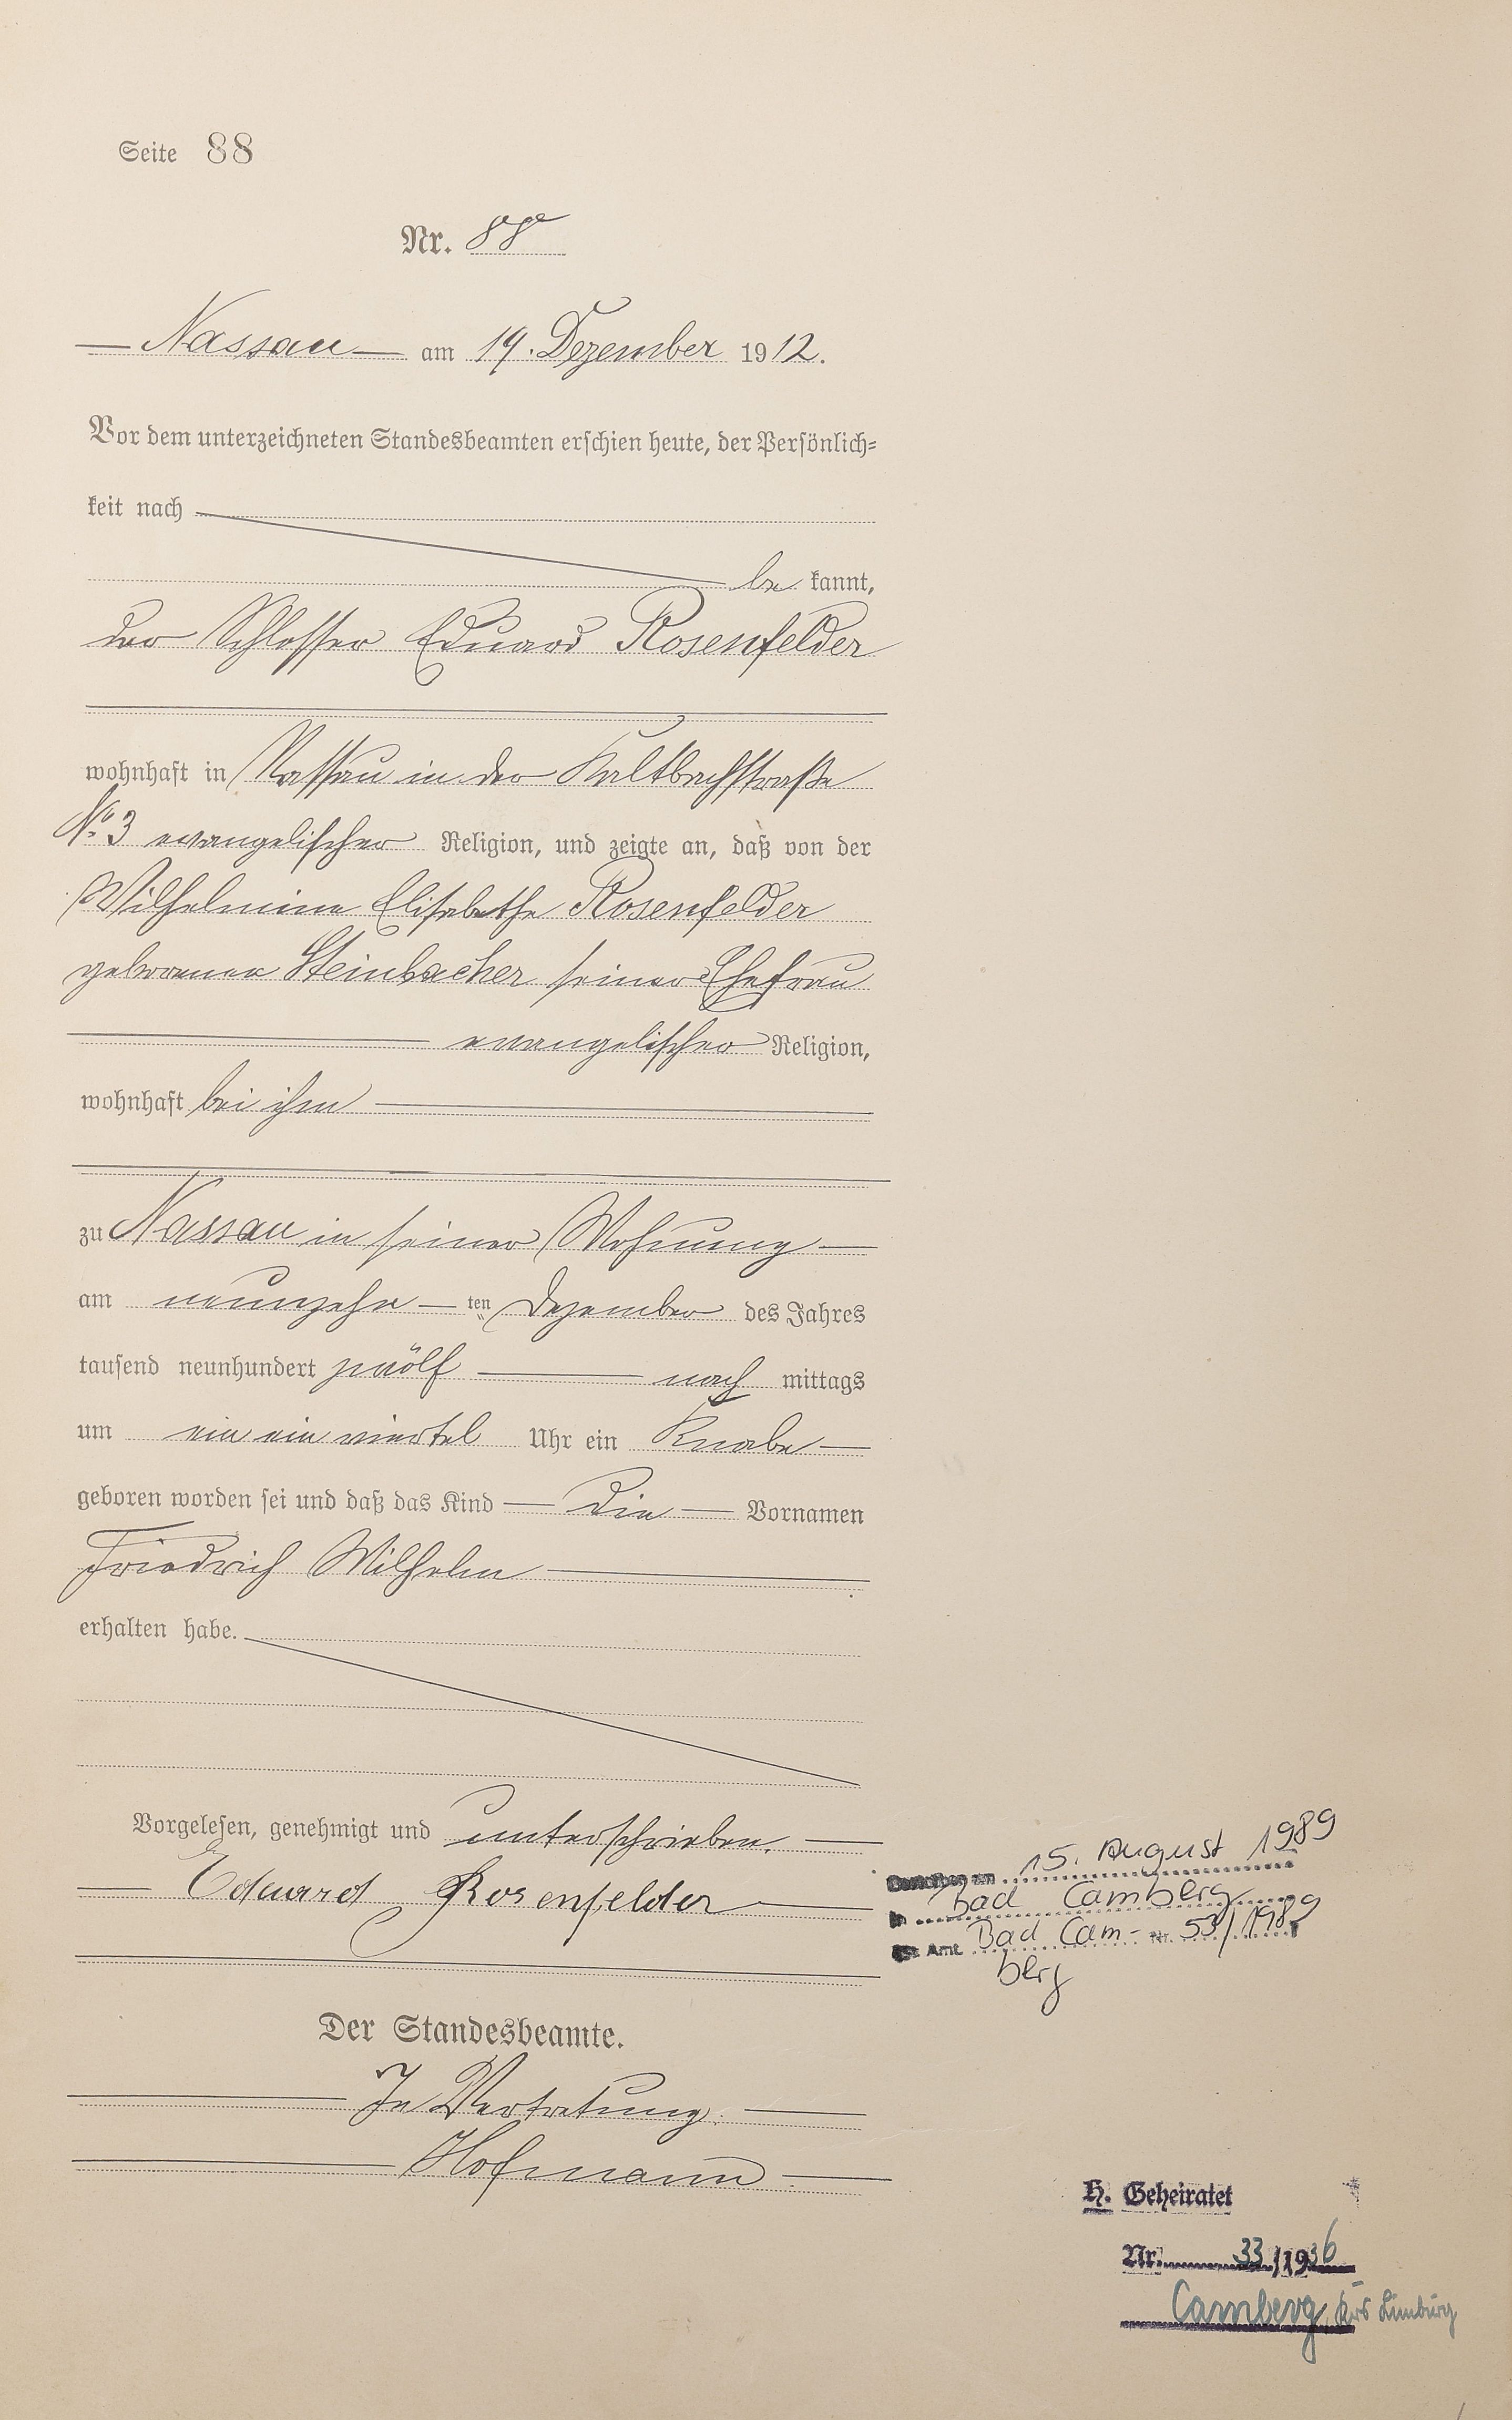 Seite 88
Nr. 88
Nassau am 19. Dezember 1912.
Vor dem unterzeichneten Standesbeamten erschien heute, der Persönlich=
keit nach
be kannt,
der Schlosser Eduard Rosenfelder
wohnhaft in Nassau in der Kaltbachstraße
No. 3 evangelischer Religion, und zeigte an, daß von der
Wilhelmine Elisabethe Rosenfelder
geborenen Steinbacher seiner Ehefrau
evangelischer Religion,
wohnhaft bei ihm
zu Nassau in seiner Wohnung
am neunzehn ten Dezember des Jahres
tausend neunhundert zwölf nach mittags
um ein ein viertel Uhr ein Knabe
geboren worden sei und daß das Kind die Vornamen
Friedrich Wilhelm
erhalten habe.
Vorgelesen, genehmigt und unterschrieben.
Eduard Rosenfelder
Der Standesbeamte.
In Vertretung.
Hofmann
Gestorben am 15. August 1989
in Bad Camberg
St. Amt Bad Cam- Nr. 53/1989
berg
H. Geheiratet
Nr. 33/1936
Camberg, Krs Limburg